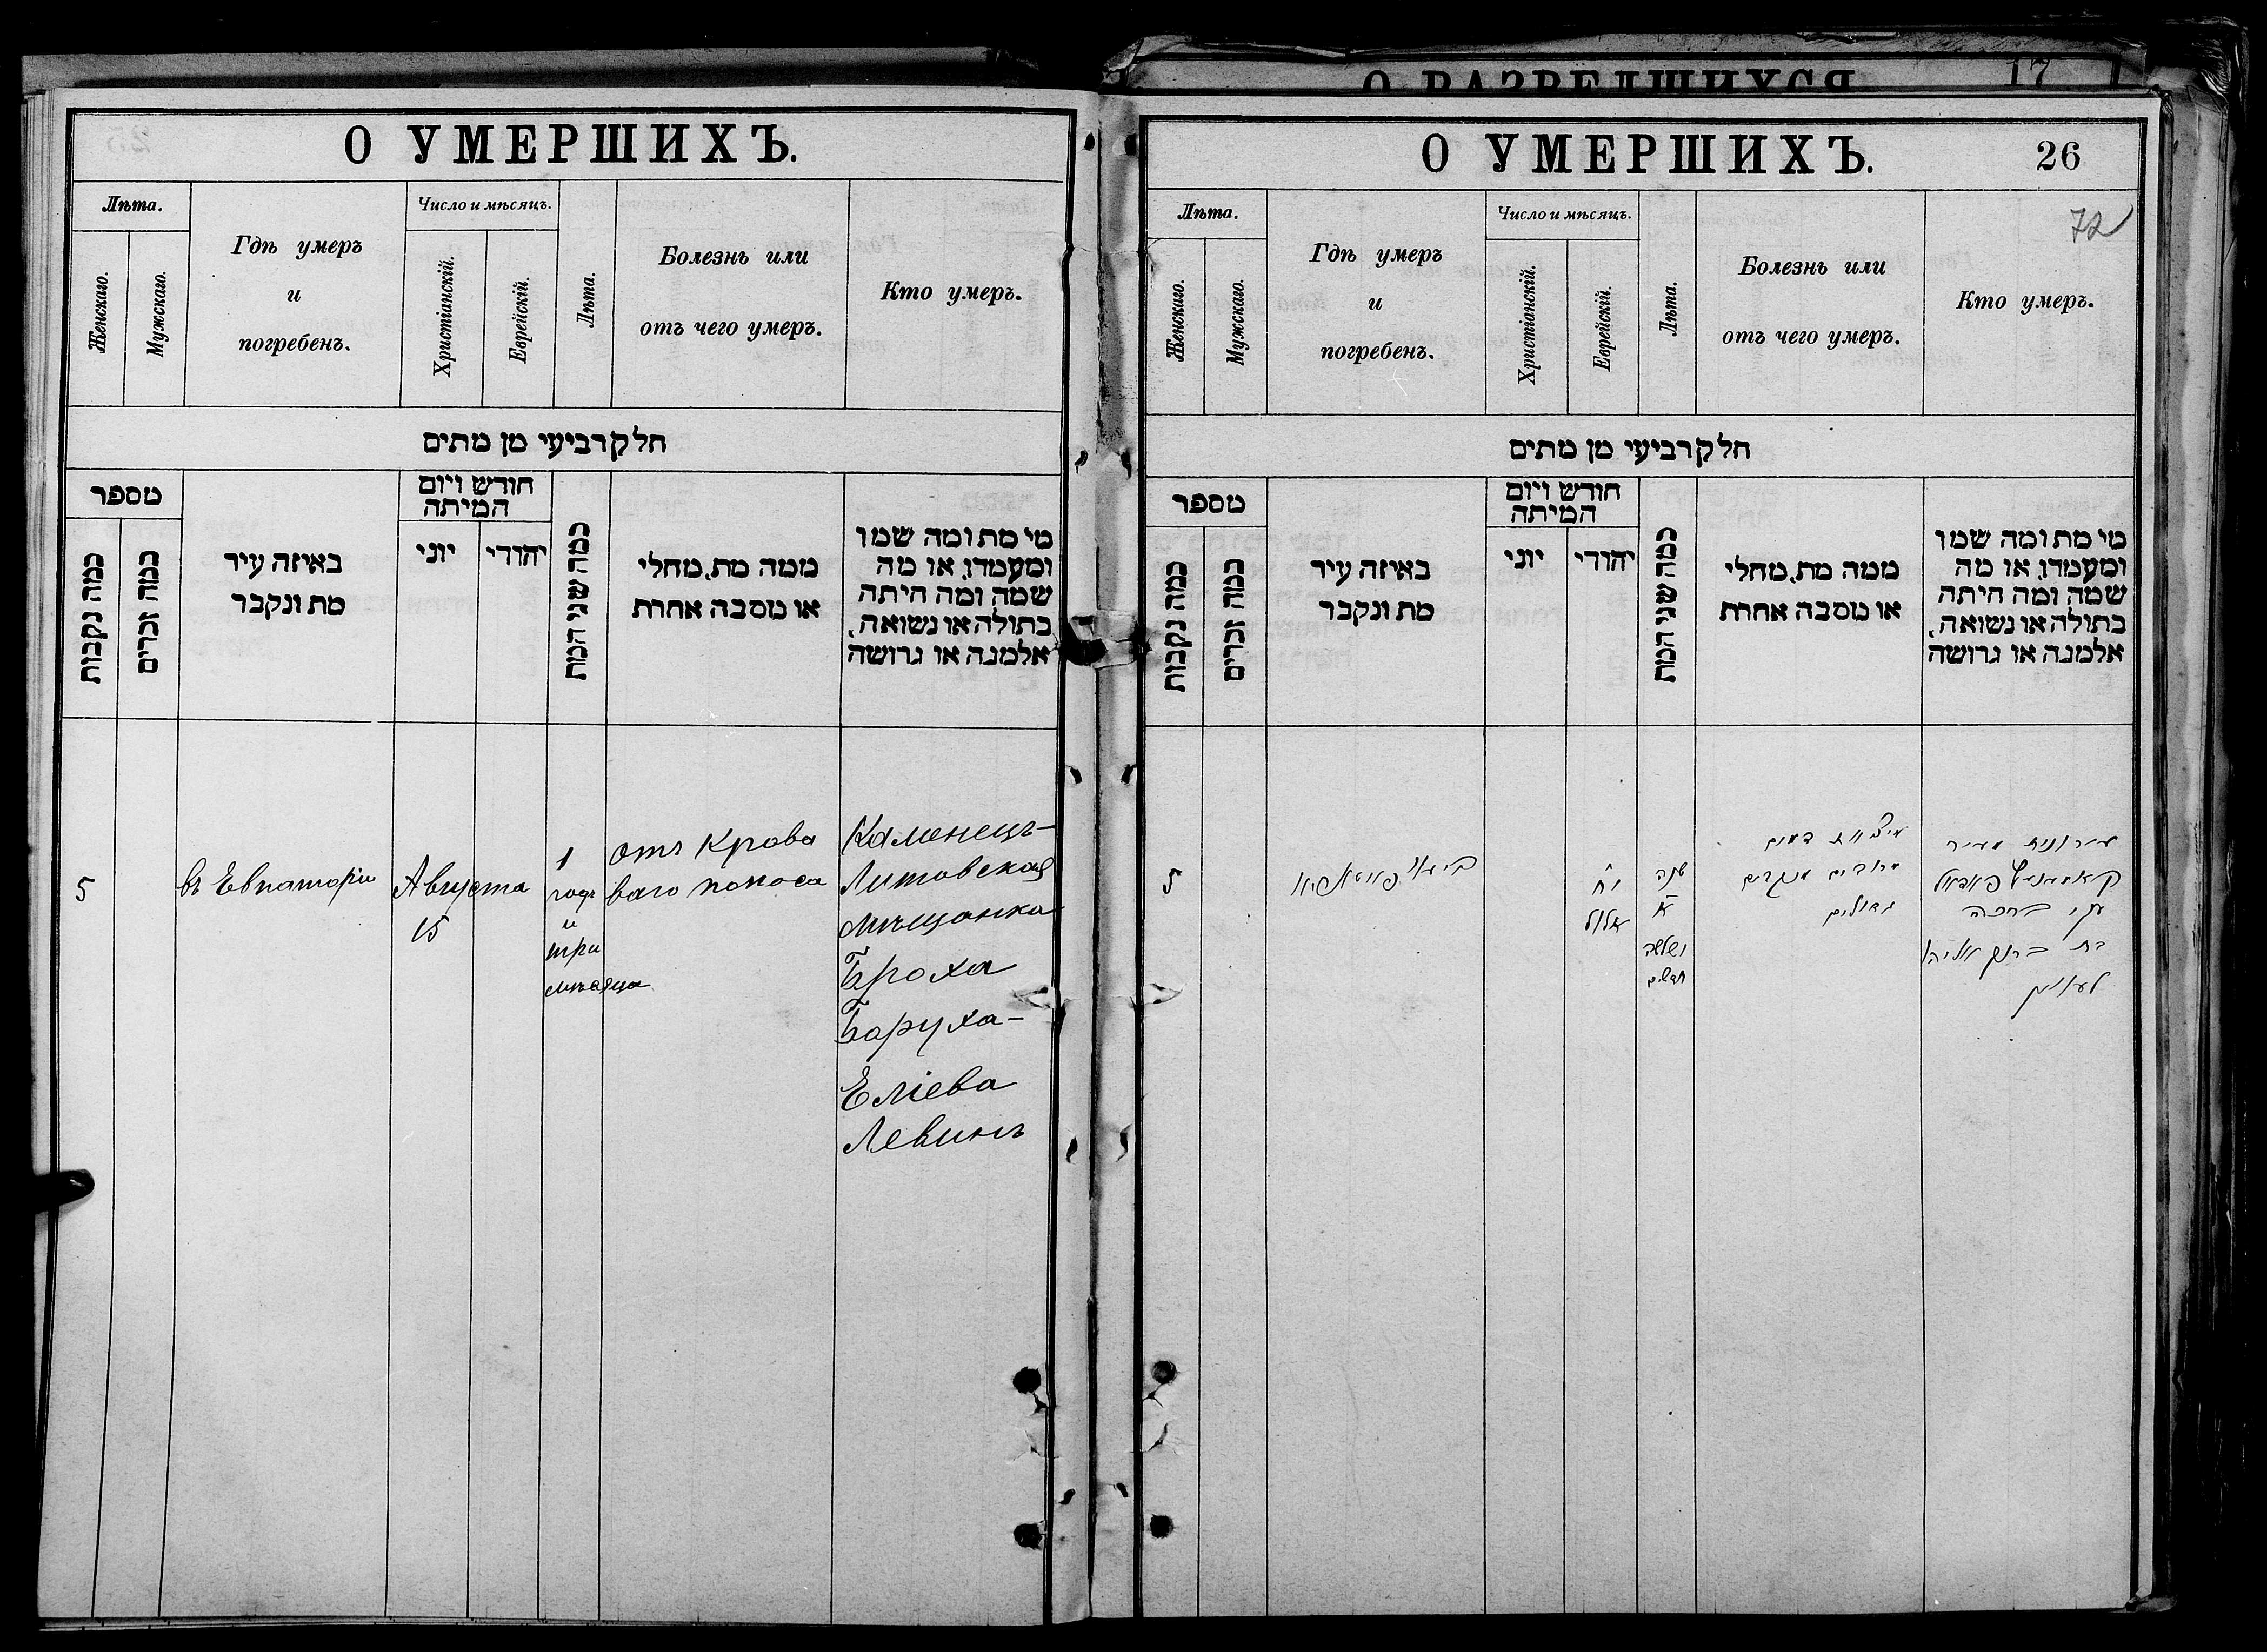 О РАЗВЕДШИХСЯ 17
О УМЕРШИХЪ.
Лѣта.
Женскаго.
Мужскаго.
Гдѣ умеръ
и
погребенъ.
Число и мѣсяцъ.
Христіанскій.
Еврейскій.
Лѣта.
Болезнь или
отъ чего умеръ.
Кто умеръ.
חלק רביעי מן מתים
מספר
כמה נקבות
כמה זכרים
באיזה עיר
מת ונקבר
חודש ויום
המיתה
יוני
יהודי
כמה שני המת
ממה מת, מחלי
או מסבה אחרת
מי מת ומה שמו
ומעמדו, או מה
שמה ומה היתה
בתולה או נשואה,
אלמנה או גרושה
5
въ Евпаторіи
Августа
15
1
годъ
и
три
мѣсяца
отъ Крова
ваго поноса
Каменецъ-
Литовская
мѣщанка
Броха
Баруха-
Еліева
Левинъ
О УМЕРШИХЪ.
26
72
Лѣта.
Женскаго.
Мужскаго.
Гдѣ умеръ
и
погребенъ.
Число и мѣсяцъ.
Христіанскій.
Еврейскій.
Лѣта.
Болезнь или
отъ чего умеръ.
Кто умеръ.
חלק רביעי מן מתים
מספר
כמה נקבות
כמה זכרים
באיזה עיר
מת ונקבר
חודש ויום
המיתה
יוני
יהודי
כמה שני המת
ממה מת, מחלי
או מסבה אחרת
מי מת ומה שמו
ומעמדו, או מה
שמה ומה היתה
בתולה או נשואה,
אלמנה או גרושה
5
אלול
שנה
א
ושלשה
חדשים
דמים
עירונית מעיר
ברכה
בת ברוך אליהו
לעווין